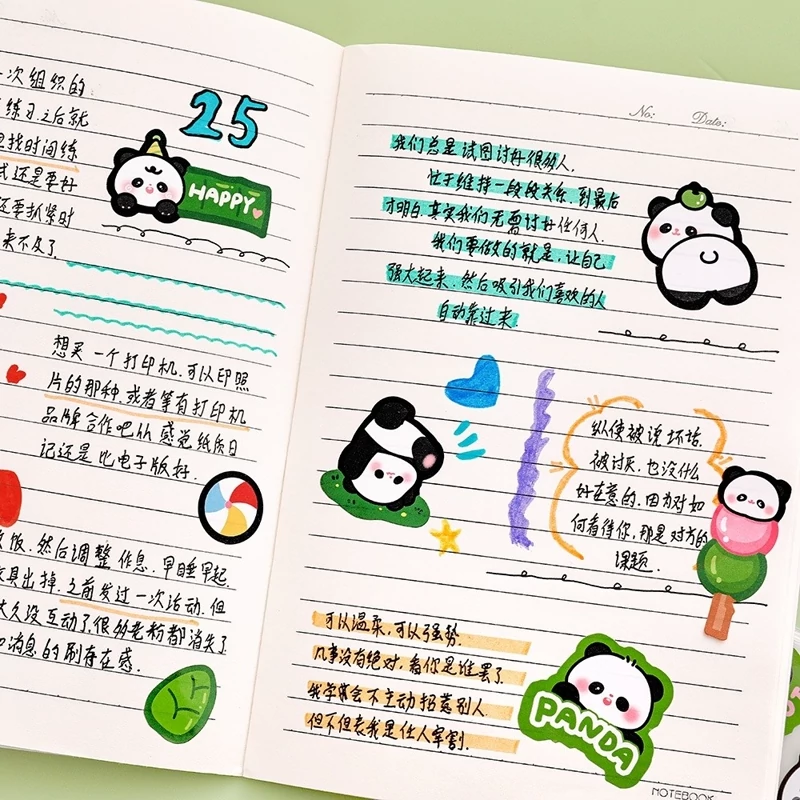 一次组织的
练习之后就
找时间练
式还是要好
还要抓紧时
来不及了.
25
HAPPY
想买一个打印机.可以印照
片的那种.或者等有打印机
品牌合作吧从感觉纸质日
记还是比电子版好.
饭.然后调整作息.早睡早起.
具出掉.之前发过一次活动.但
太久没互动了.很多老粉都消失了
消息的刷存在感.
No: Date:
我们总是试图讨好很多人.
忙于维持一段段关系.到最后
才明白.其实我们无需讨好任何人.
我们要做的就是.让自己
强大起来.然后吸引我们喜欢的人
自动靠过来
纵使被说坏话.
被讨厌.也没什么
好在意的.因为对如
何看待你.那是对方的
课题.
可以温柔.可以强势.
凡事没有绝对.看你是谁罢了.
我学会不主动招惹别人.
但不但表我是任人宰割.
PANDA
NOTEBOOK